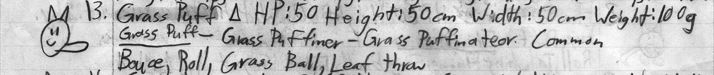 13. Grass Puff Δ HP:50 Height:50cm Width:50cm Weight:100g
Grass Puff - Grass Puffiner - Grass Puffinateor. Common
Bouce, Roll, Grass Ball, Leaf throw